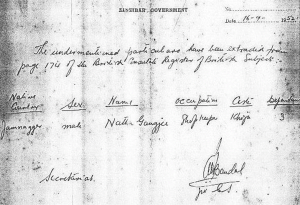 ZANZIBAR GOVERNMENT
No.
Date 16-9- 1952
The undermentioned particulars have been extracted from
page 1718 of the British Register of British Subjects.
Native Country Sex Name Occupation Caste Dependants
Jamnagger male Nater Gangjee Shopkeeper Khoja 3
Secretariat.
for C.S.